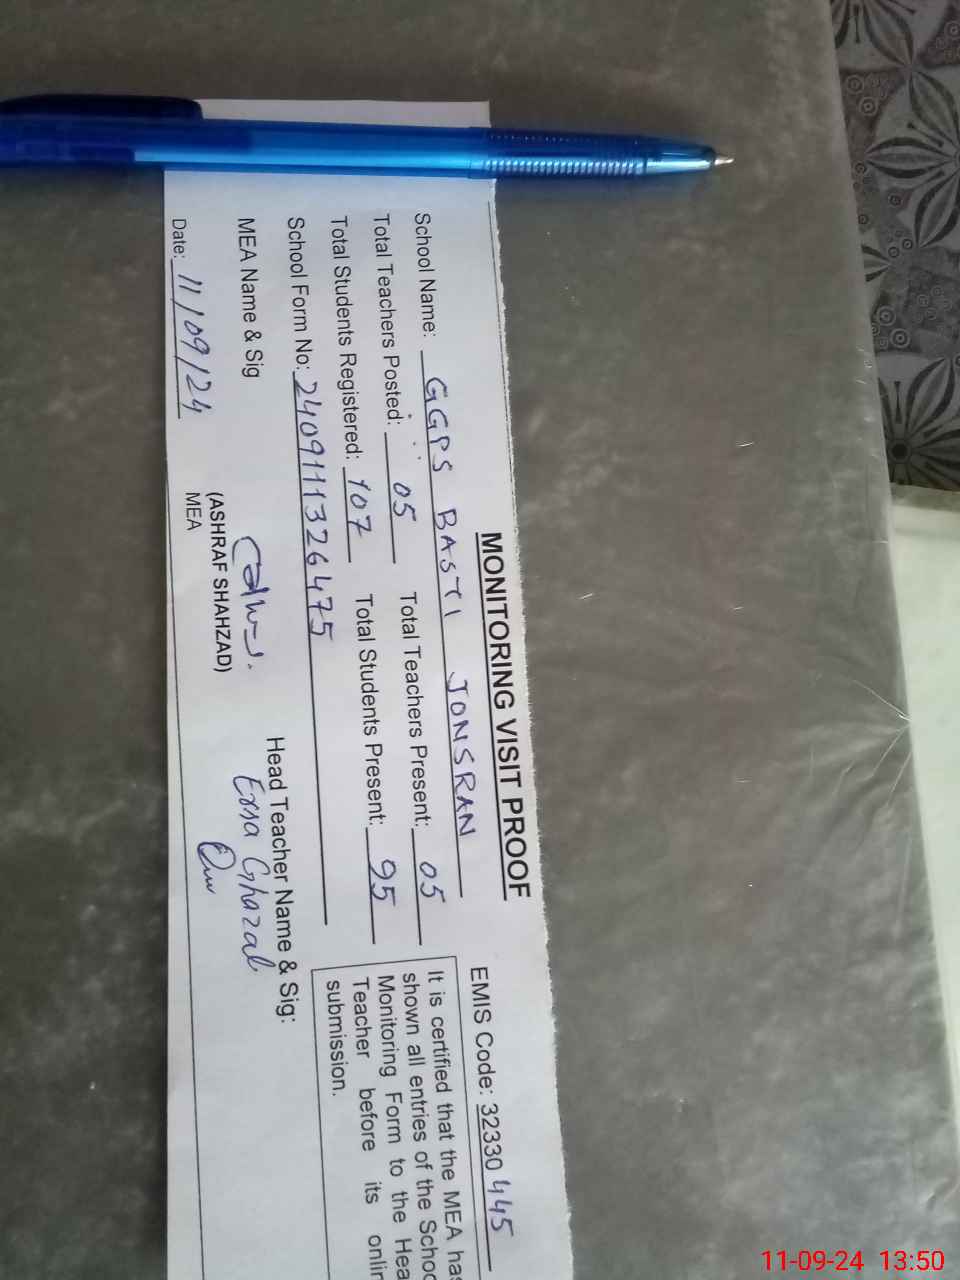 MONITORING VISIT PROOF
EMIS Code: 32330 445
School Name: GGPS BASTI JONSRAN
Total Teachers Posted: 05 Total Teachers Present: 05
Total Students Registered: 107 Total Students Present: 95
School Form No: 2409111326475
It is certified that the MEA has
shown all entries of the Schoo
Monitoring Form to the Hea
Teacher before its onlin
submission.
MEA Name & Sig
(ASHRAF SHAHZAD)
MEA
Head Teacher Name & Sig:
Ghazal
Date: 11/09/24
11-09-24 13:50